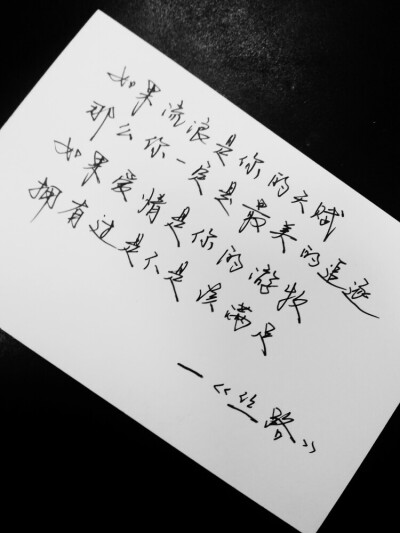 如果流浪是你的天赋
那么你一定是最美的追逐
如果爱情是你的游牧
拥有过是不是该满足
—《丝路》